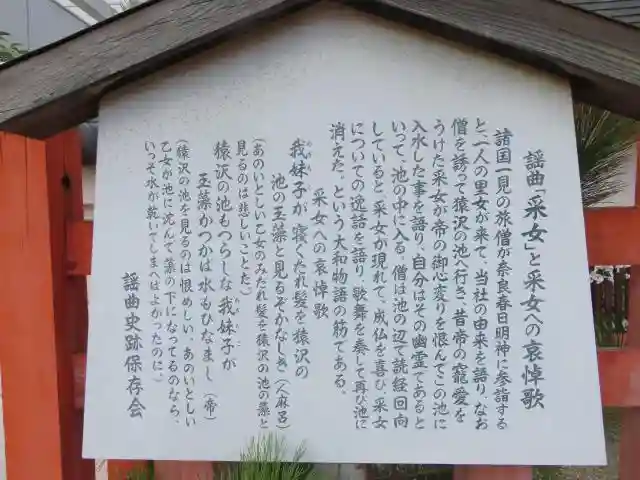 謡曲「采女」と采女への哀悼歌
諸国一見の旅僧が奈良春日明神に参詣する
と、一人の里女が来て、当社の由来を語り、なお
僧を誘って猿沢の池へ行き、昔帝の寵愛を
うけた采女が帝の御心変りを恨んでこの池に
入水した事を語り、自分はその幽霊であると
いって、池の中に入る。僧は池の辺で読経回向
していると、采女が現れて、成仏を喜び、采女
についての逸話を語り、歌舞を奏して再び池に
消えた、という大和物語の筋である。
采女への哀悼歌
我妹子が寝ぐたれ髪を猿沢の
池の玉藻と見るぞかなしき(人麻呂)
(あのいとしい乙女のみだれ髪を猿沢の池の藻と
見るのは悲しいことだ)
猿沢の池もつらしな我妹子が
玉藻かつかば水もひなまし(帝)
(猿沢の池を見るのは恨めしい。あのいとしい
乙女が池に沈んで藻の下になってるのなら、
いっそ水が乾いてしまへばよかったのに。)
謡曲史跡保存会